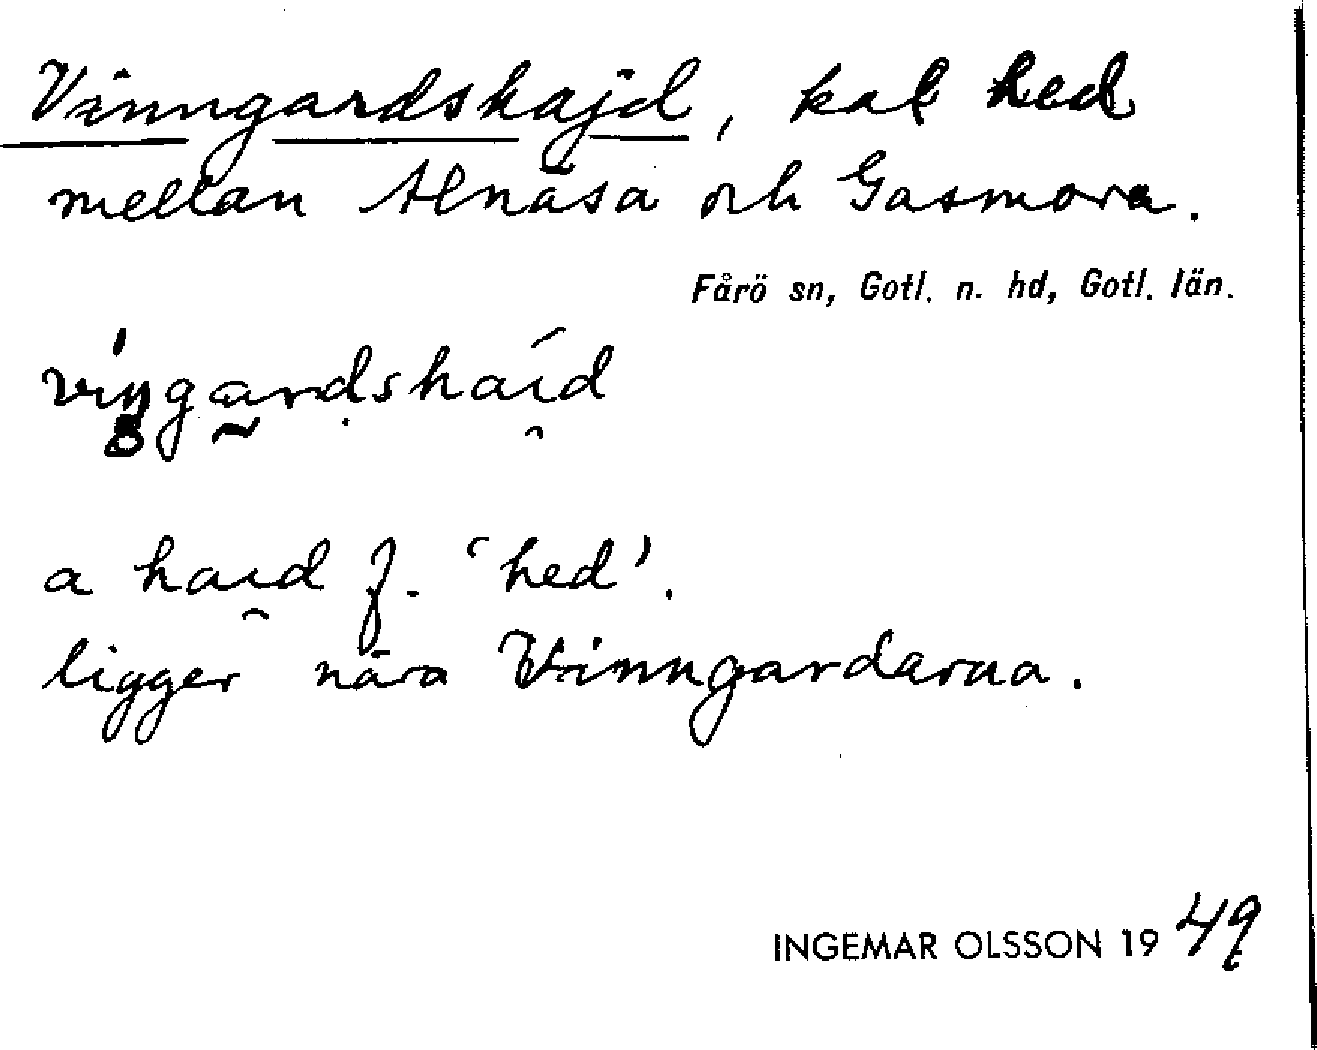 Vinngardshajd, kal hed
mellan Alnäsa och Gasmora.
Fårö sn, Gotl. n. hd, Gotl. län.
viŋgardshaid
a haid f. 'hed'.
ligger nära Vinngardarna.
INGEMAR OLSSON 1949